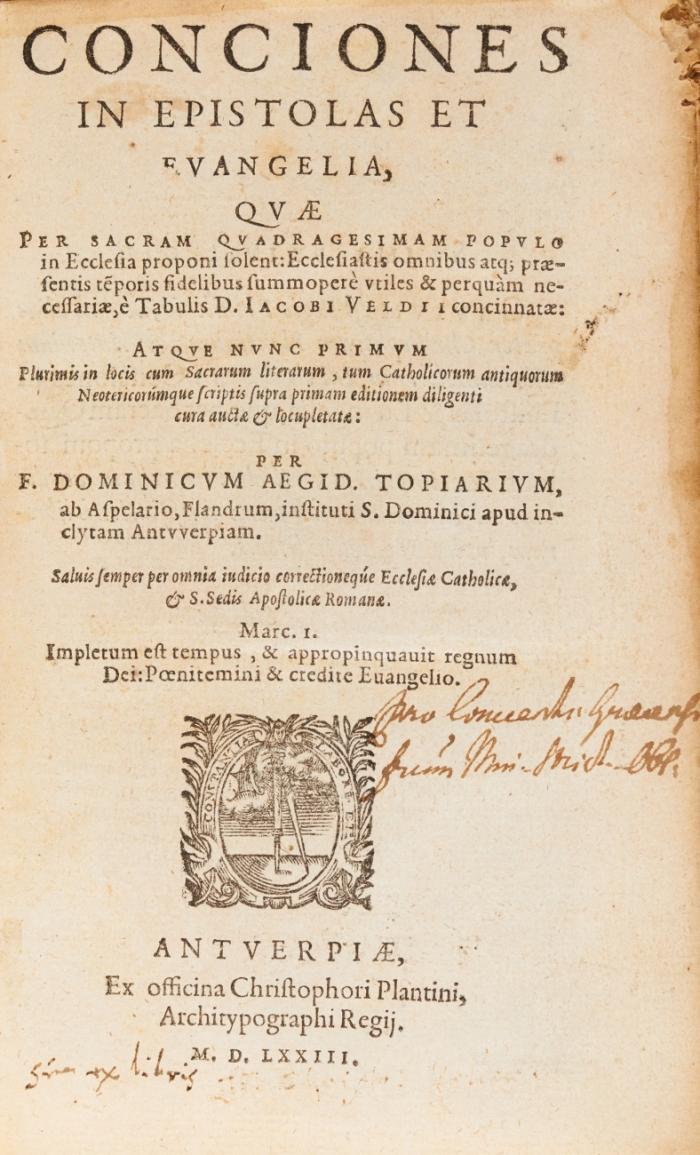 CONCIONES
IN EPISTOLAS ET
EVANGELIA,
QVÆ
PER SACRAM QVADRAGESIMAM POPVLO
in Ecclesia proponi ſolent: Ecclesiaſtis omnibus atq; præ-
ſentis tẽporis fidelibus ſummoperè vtiles & perquàm ne-
ceſſariæ, è Tabulis D. IACOBI VELDII concinnatæ:
ATQVE NVNC PRIMVM
Plurimis in locis cum Sacrarum literarum, tum Catholicorum antiquorum
Neotericorúmque ſcriptis ſupra primam editionem diligenti
cura auctæ & locupletatæ:
PER
F. DOMINICVM AEGID. TOPIARIVM,
ab Aſpelario, Flandrum, inſtituti S. Dominici apud in-
clytam Antvverpiam.
Saluis ſemper per omnia iudicio correctioneqúe Ecclesiæ Catholicæ,
& S. Sedis Apoſtolicæ Romanæ.
Marc. 1.
Impletum eſt tempus, & appropinquauit regnum
Dei: Pœnitemini & credite Euangelio.
pro Conventu
CONSTANTIA LABORE ET
ANTVERPIÆ,
Ex officina Chriſtophori Plantini,
Architypographi Regij.
M. D. LXXIII.
ex libris